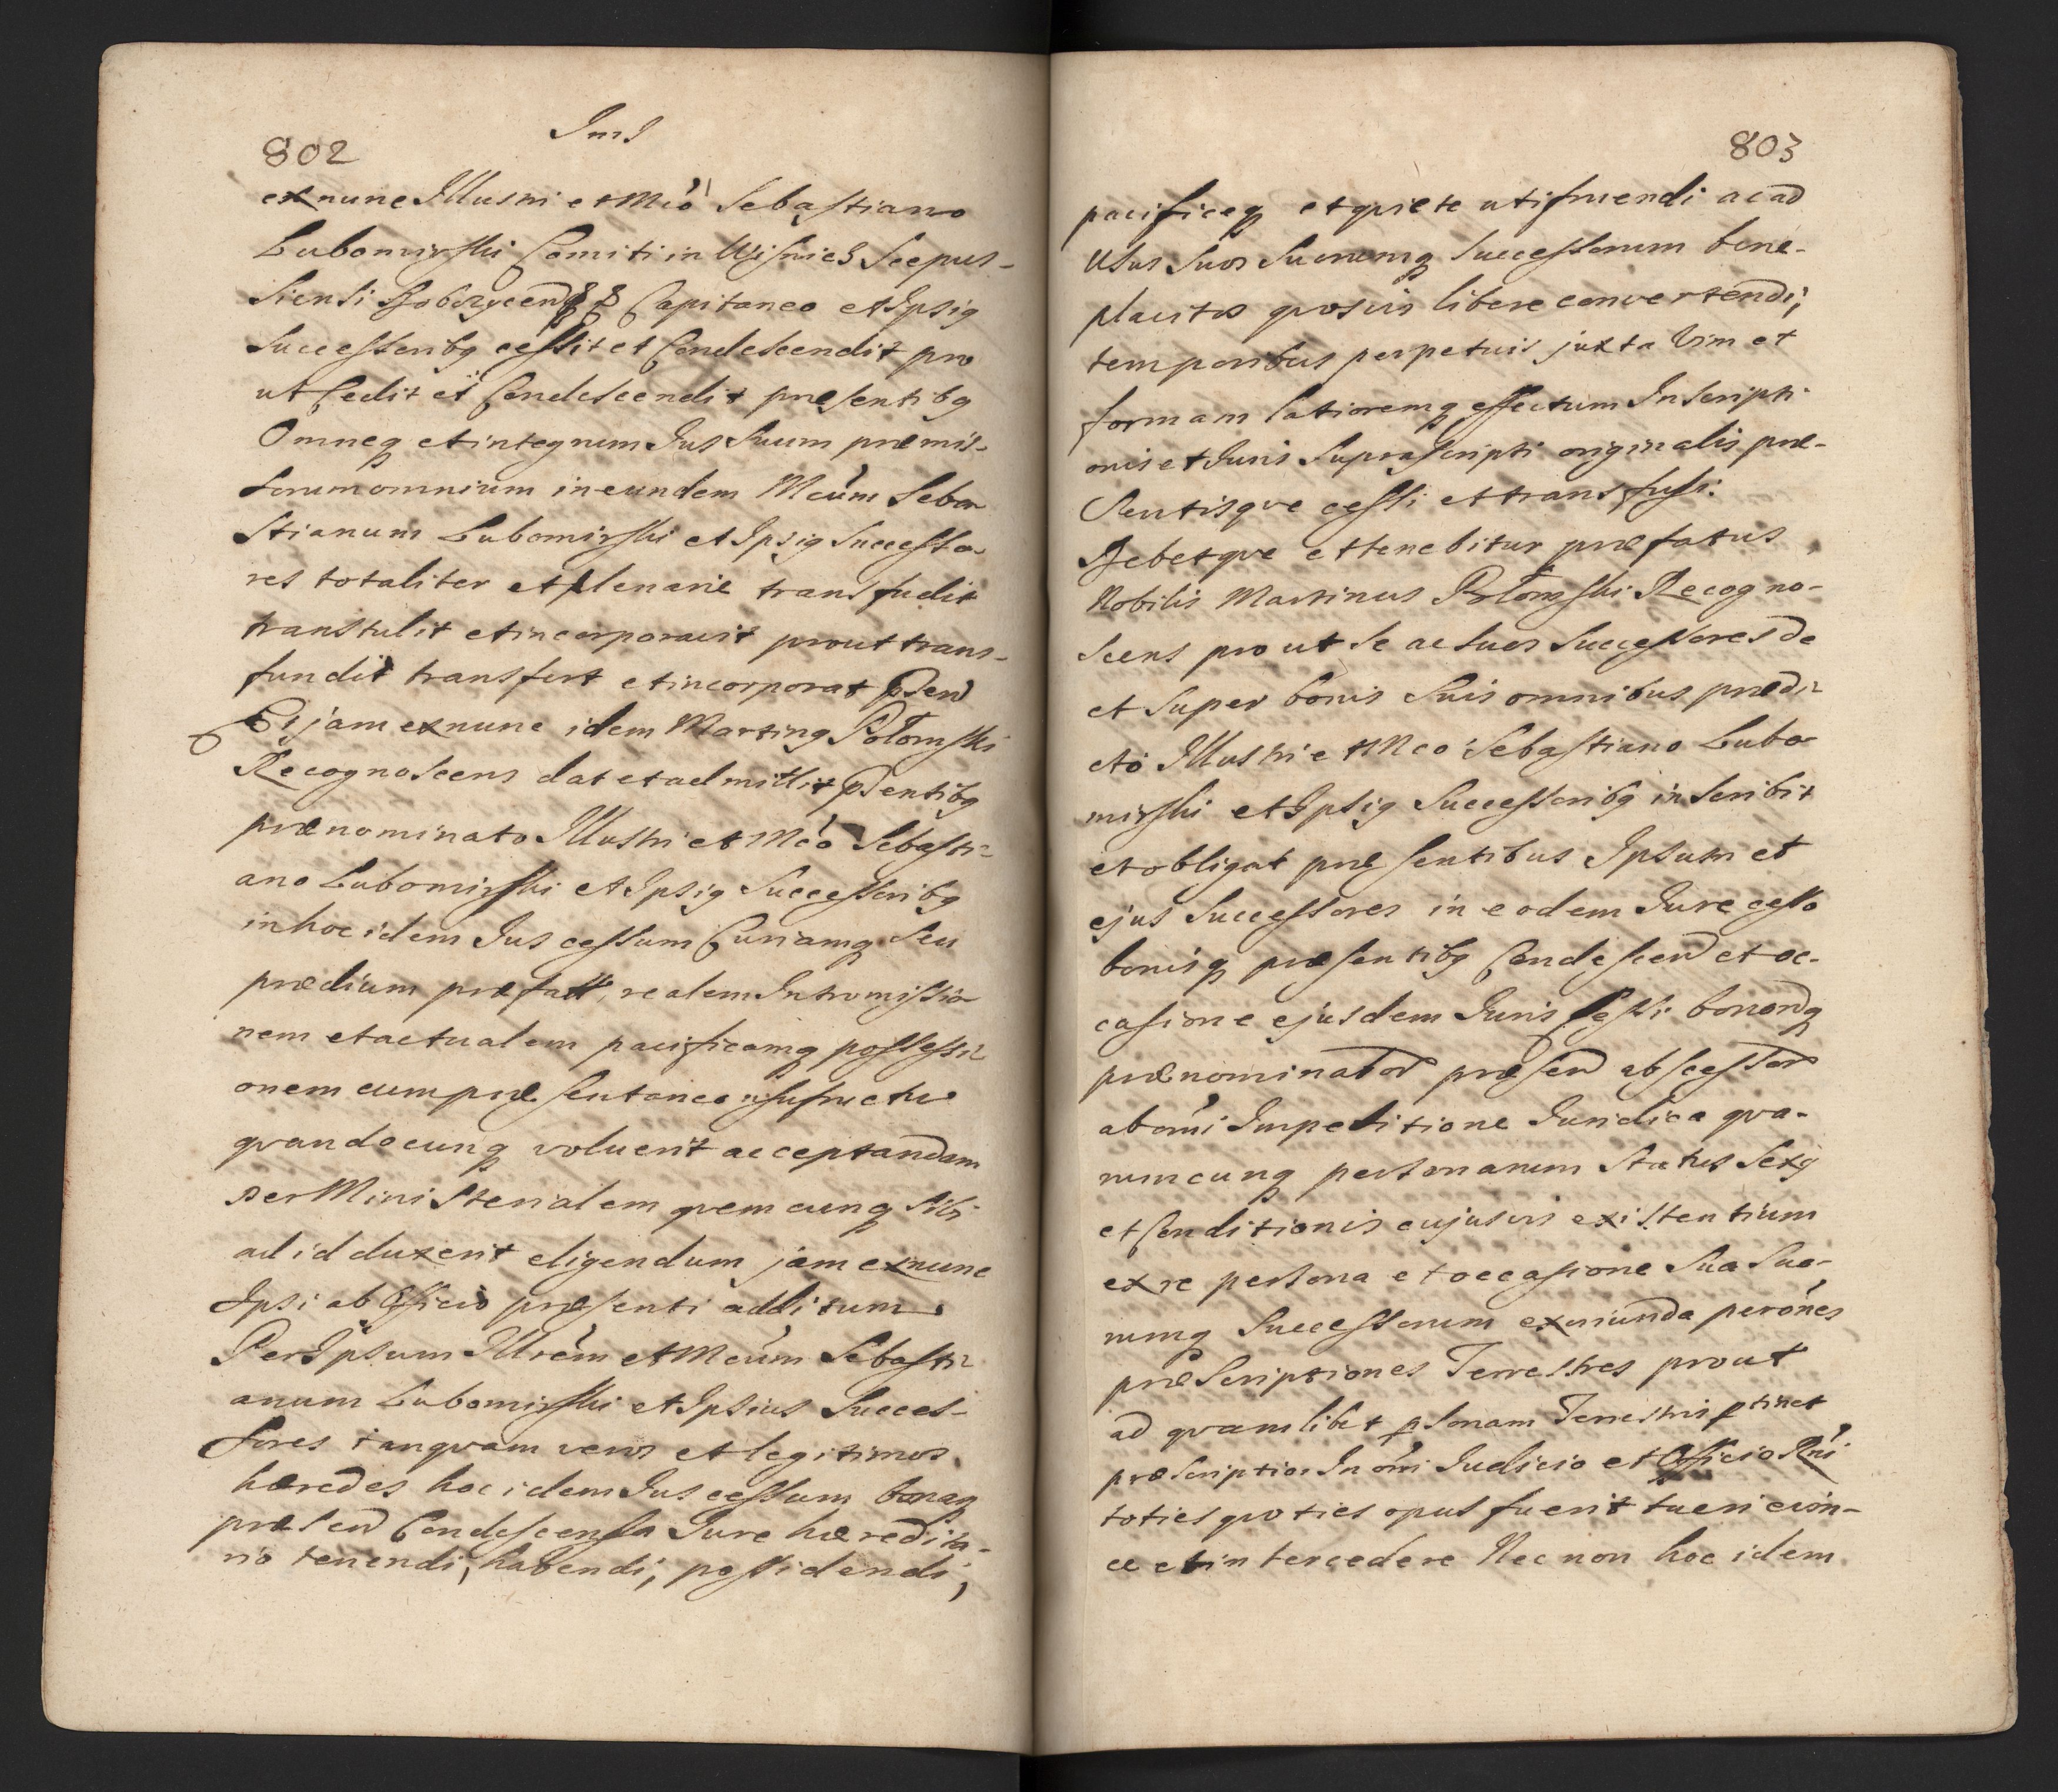 802
ex nunc Illustri et Mco Sebastiano
Lubomirski Comiti in Wisnicz Scepus-
siensi Dobczycen Capitaneo et Ipsiq
Successoribq cessit et Condescendit pro
ut Cedit et Condescendit præsentibq
Omneq et integrum Jus Suum præmis-
sorum omnium in eundem Mcum Seba
stianum Lubomirski et Ipsiq Successo
res totaliter et plenarie transfudit
transtulit et incorporavit prout trans-
fundit transfert et incorporat Psen
Ei jam ex nunc idem Martinq Połomski
Recognoscens dat et admittit Psentibq
prænominato Illustri et Mco Sebasti-
ano Lubomirski et Ipsiq Successoribq
in hoc idem Jus cessum Curiamq Seu
prædium præfatt, realem Intromissio
nem et actualem pacificamq possessi-
onem cum præsentaneo usufructu
qvandocunq voluerit acceptandam
per Ministerialem qvemcunq Sibi
ad id duxerit eligendum jam ex nunc
Ipsi ab Officio præsenti additum
Per Ipsum Illrem et Mcum Sebasti-
anum Lubomirski et Ipsius Succes-
sores tanqvam veros et legitimos
hæredes hoc idem Jus cessum bonaq
præsen Condescensa Jure hæredita-
rio tenendi, habendi, possidendi,
803
pacificeq et qviete utifruendi ac ad
Usus Suos Suorumq Successorum bene-
placitos qvosvis libere convertendi;
temporibus perpetuis juxta Vim et
formam latioremq effectum Inscripti
onis et Juris Suprascripti originalis præ-
Sentisqve cessi et transfusi.
Debetqve et tenebitur præfatus
Nobilis Martinus Połomski Recogno-
scens prout Se ac Suos Successores de
et Super bonis Suis omnibus prædi-
cto Illustri et Mco Sebastiano Lubo
mirski et Ipsiq Successoribq inscribit
et obligat præsentibus Ipsum et
ejus Successores in eodem Jure cesso
bonisq præsentibq Condescen et oc-
casione ejusdem Juris Cessi bonorq
prænominator præsen abscessor
ab omi Impetitione Juridica qva-
rumcunq personarum Status Sexq
et Conditionis cujusvis existentium
ex re persona et occasione Sua Suo-
rumq Successorum exoriunda per ones
præscriptiones Terrestres prout
ad qvamlibet psonam Terrestris ptinet
præscriptio In omi Judicio et Officio Rni
toties qvoties opus fuerit tueri evin-
ce et intercedere Nec non hoc idem